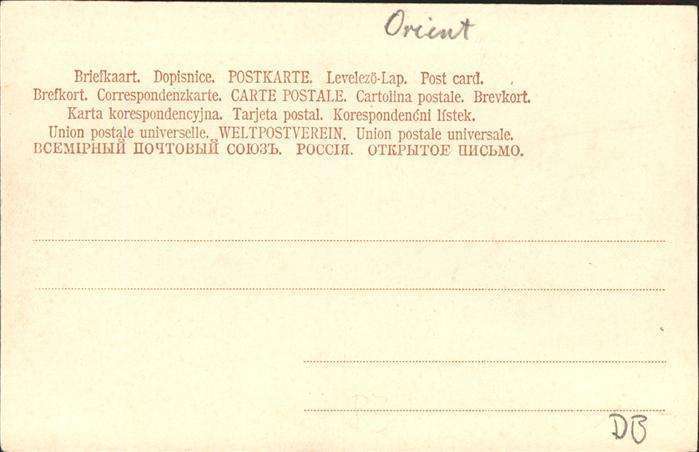 Orient
Briefkaart. Dopisnice. POSTKARTE. Levelezö-Lap. Post card.
Brefkort. Correspondenzkarte. CARTE POSTALE. Cartolina postale. Brevkort.
Karta korespondencyjna. Tarjeta postal. Korespondenćni lístek.
Union postale universelle. WELTPOSTVEREIN. Union postale universale.
ВСЕМІРНЫЙ ПОЧТОВЫЙ СОЮЗЪ. РОССІЯ. ОТКРЫТОЕ ПИСЬМО.
DB